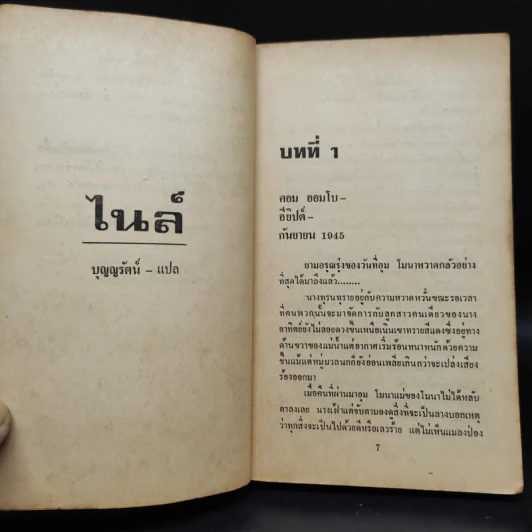 ไนล์
บุญญรัตน์ – แปล
บทที่ 1
คอม ออมโบ –
อียิปต์ –
กันยายน 1945
ยามอรุณรุ่งของวันที่อุม โมนาหวาดกลัวอย่าง
ที่สุดได้มาถึงแล้ว........
นางทุรนทุรายอยู่กับความหวาดหวั่นขณะรอเวลา
ที่คนพวกนั้นจะมาจัดการกับลูกสาวคนเดียวของนาง
อาทิตย์ยังไม่ลอยดวงขึ้นเหนือเนินเขาทรายสีแดงซึ่งอยู่ทาง
ด้านขวาของแม่น้ำแต่อากาศเริ่มร้อนหนาหนักด้วยความ
ชื้นแม้แต่หมู่มวลนกก็ยังอ่อนเพลียเกินกว่าจะเปล่งเสียง
ร้องออกมา
เมื่อคืนที่ผ่านมาอุม โมนาแม่ของโมนาไม่ได้หลับ
ตาลงเลย นางเฝ้าแต่จับตามองดูสิ่งที่จะเป็นลางบอกเหตุ
ว่าทุกสิ่งจะเป็นไปด้วยดีหรือเลวร้าย แต่ไม่เห็นแมลงป่อง
7